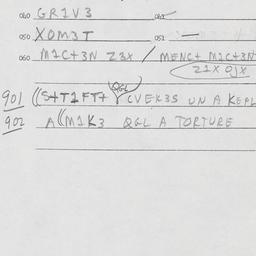 040 GR1V3 041
050 XOM3T 051 —
060 M1C+3N Z3X / MENC+ M1C+3N
Z1X OJX
QGL
901 ((S+T1FT+ CVEK3S UN A KEPL
902 A((M1K3 QGL A TORTURE